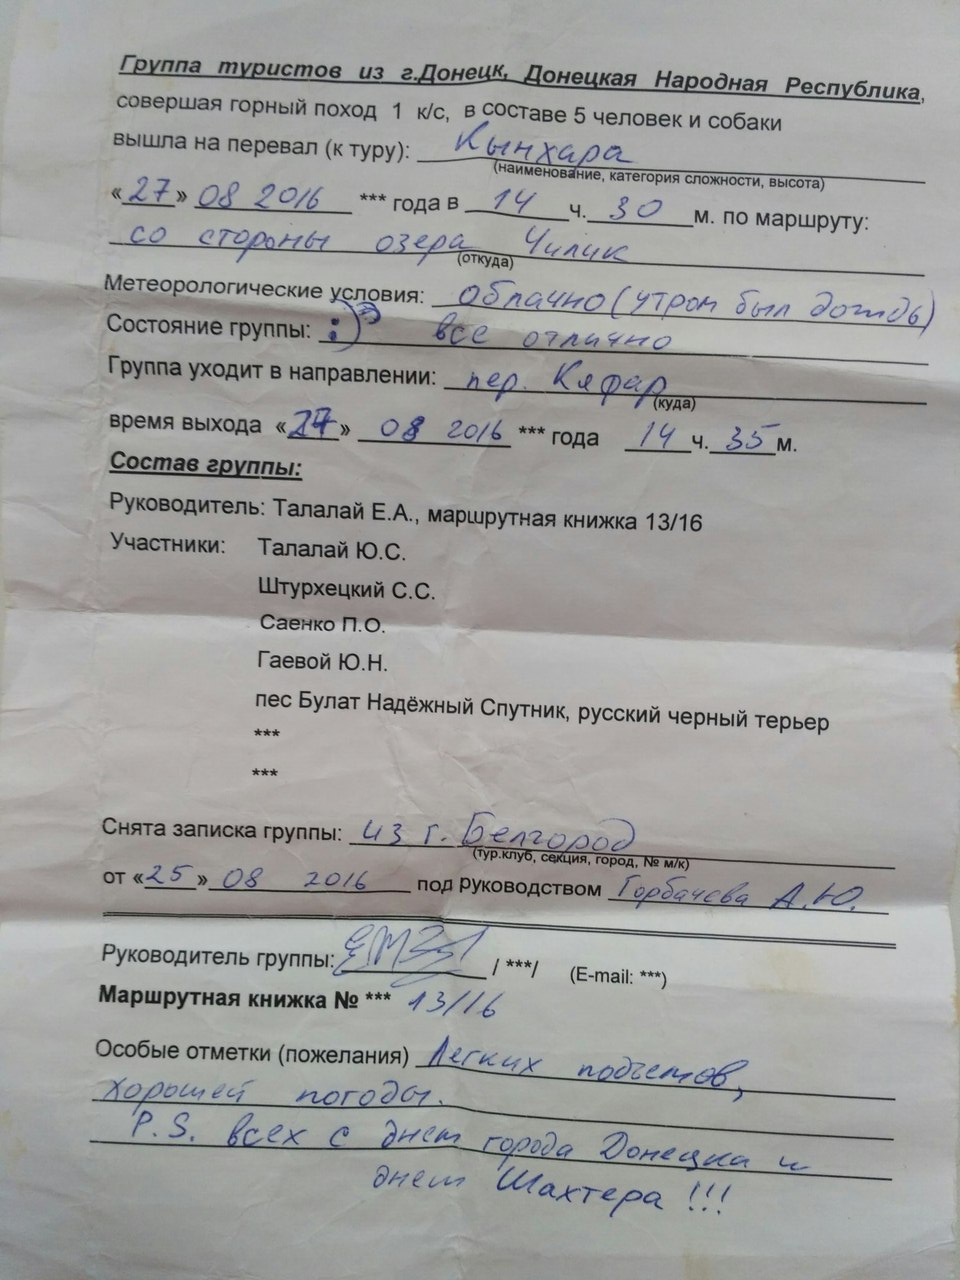 Группа туристов из г.Донецк, Донецкая Народная Республика,
совершая горный поход 1 к/с, в составе 5 человек и собаки
вышла на перевал (к туру): Кынхара
(наименование, категория сложности, высота)
«27» 08 2016 *** года в 14 ч. 30 м. по маршруту:
со стороны озера Чилик
(откуда)
Метеорологические условия: облачно (утром был дождь)
Состояние группы: :) все отлично
Группа уходит в направлении: пер. Кяфар
(куда)
время выхода «27» 08 2016 *** года 14 ч. 35 м.
Состав группы:
Руководитель: Талалай Е.А., маршрутная книжка 13/16
Участники: Талалай Ю.С.
Штурхецкий С.С.
Саенко П.О.
Гаевой Ю.Н.
пес Булат Надёжный Спутник, русский черный терьер
***
***
Снята записка группы: из г. Белгород
(тур.клуб, секция, город, № м/к)
от «25» 08 2016 под руководством Горбачева А.Ю.
Руководитель группы: / ***/ (E-mail: ***)
Маршрутная книжка № *** 13/16
Особые отметки (пожелания) Легких подъемов,
хорошей погоды.
P.S. всех с днем города Донецка и
днем Шахтера !!!